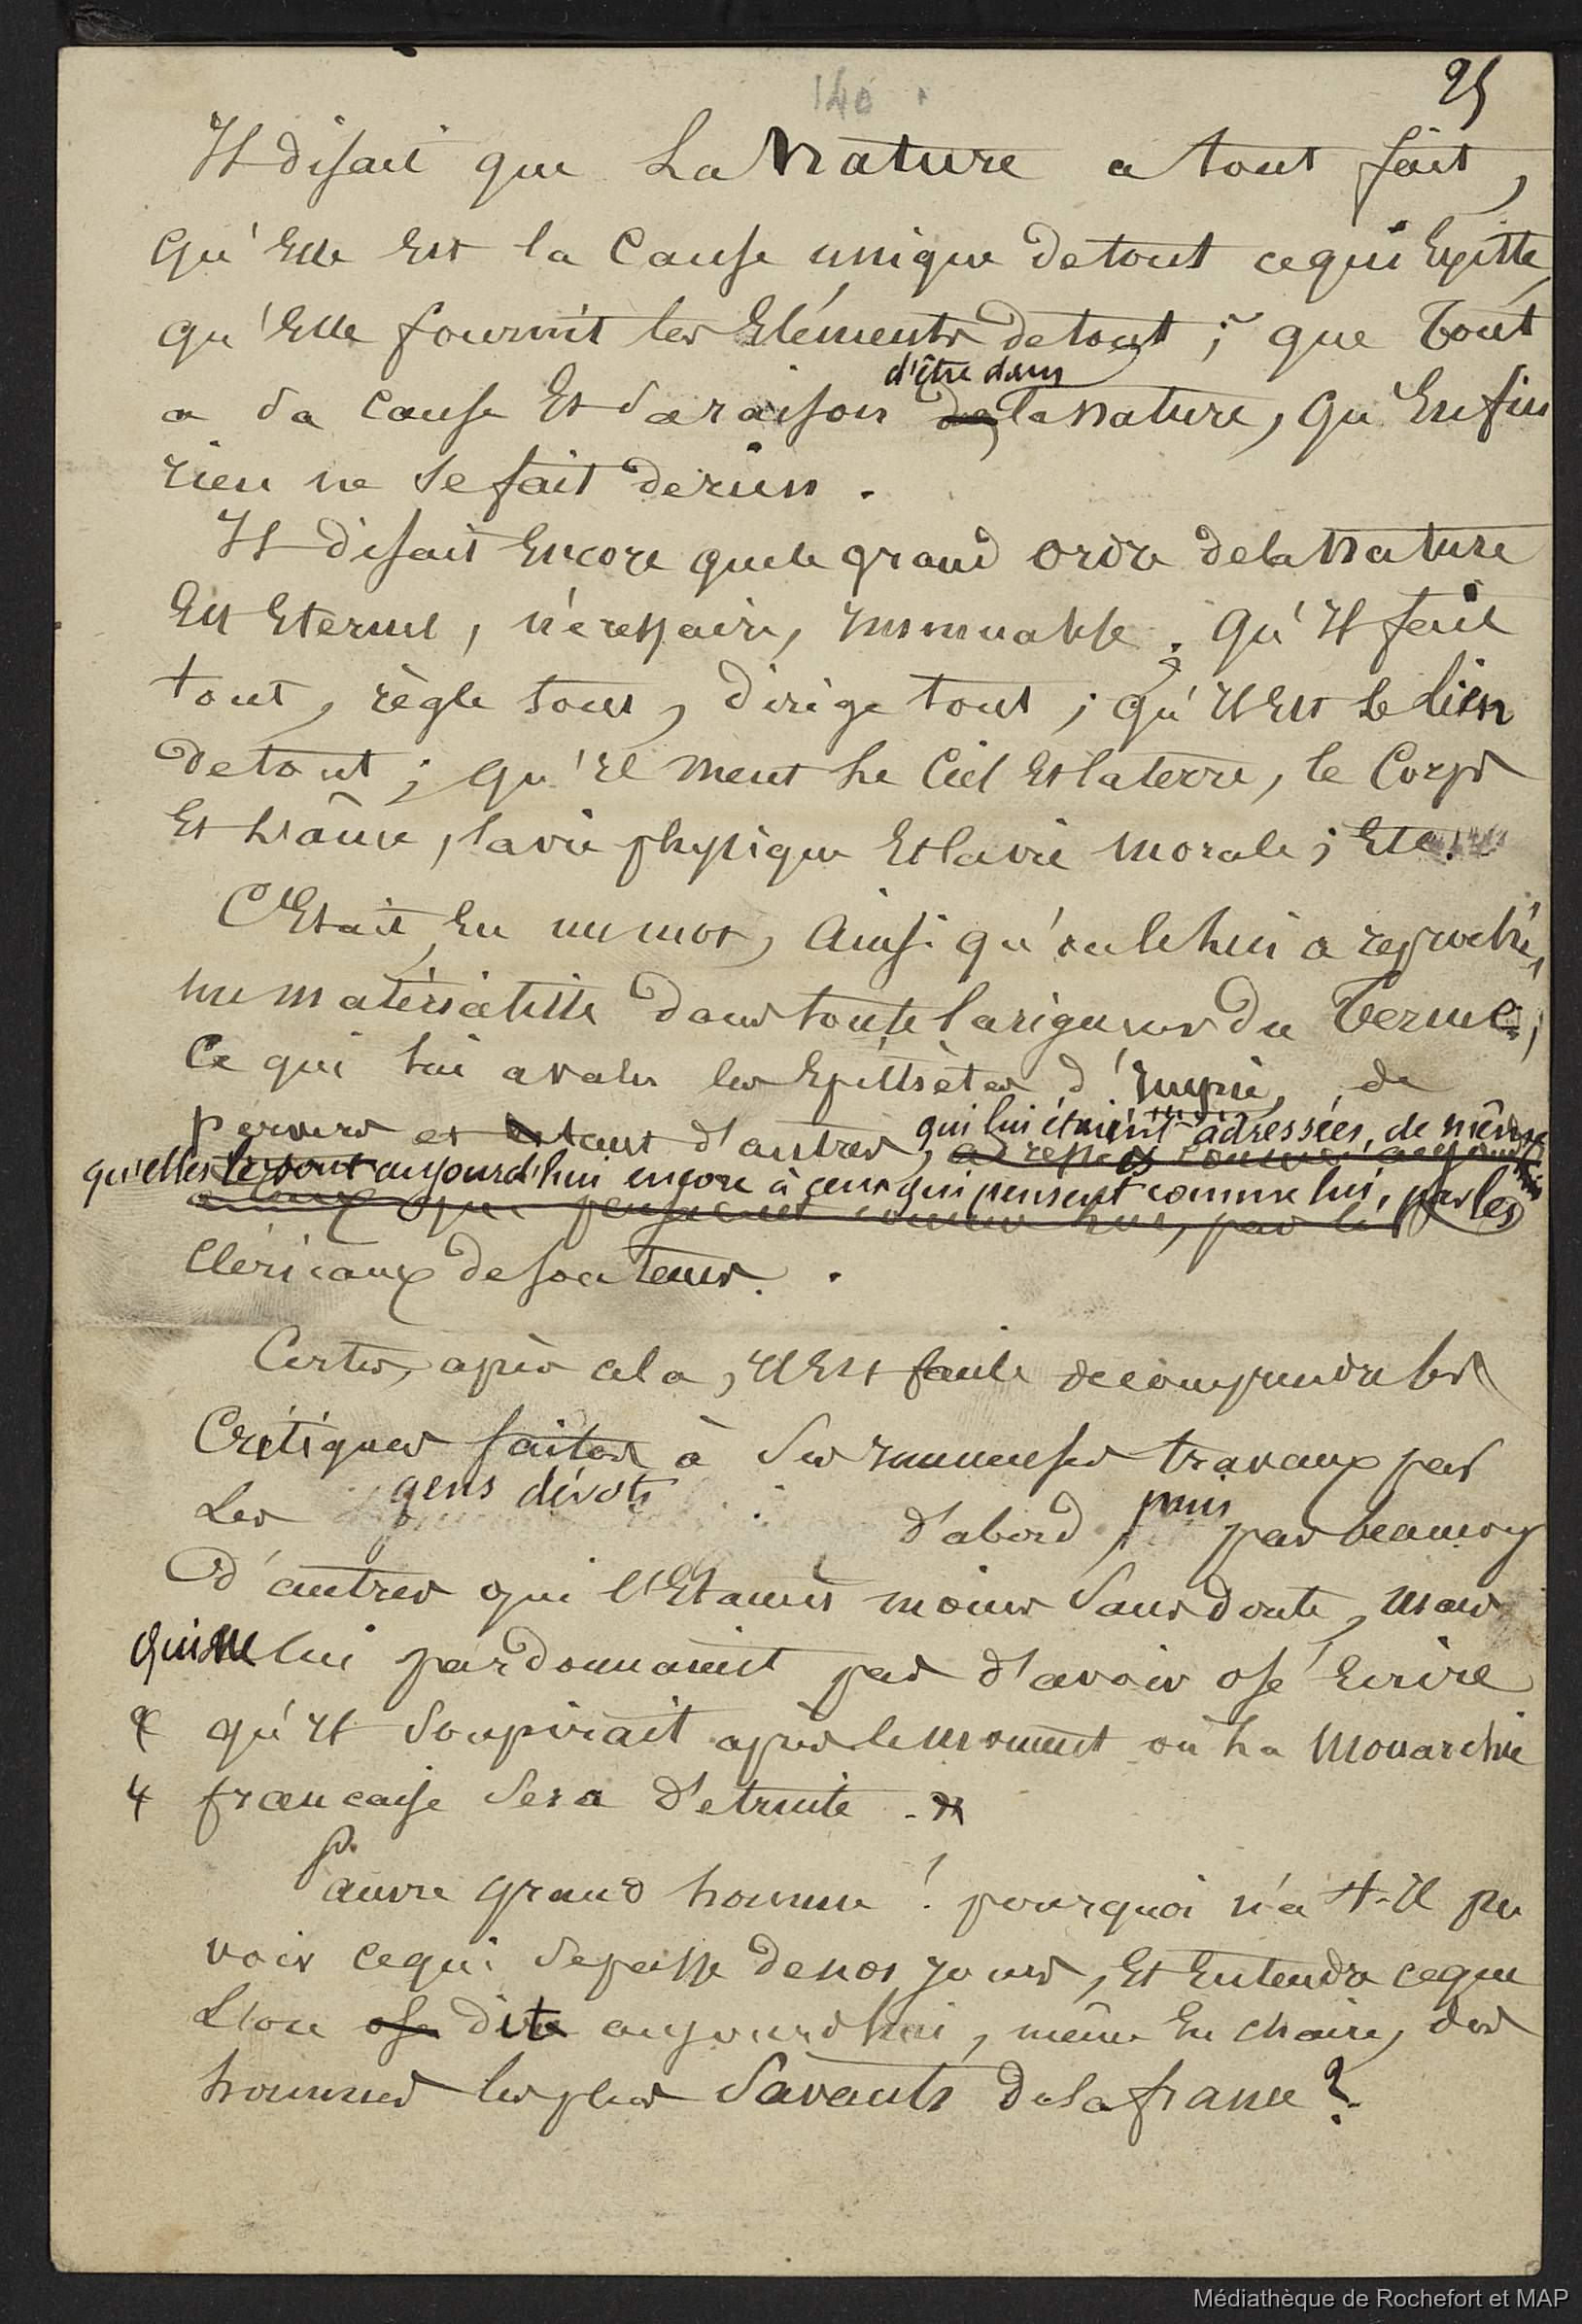 140
25
Il disait que La Nature a tout fait,
qu'Elle Est la Cause unique de tout ce qui Existe,
qu'Elle fournit les Eléments de tout ; que Tout
d'être dans
a sa cause Et sa raison de la Nature, qu'Enfin
rien ne se fait de rien.
Il disait Encore que le grand ordre de la Nature
Est Eternel, nécessaire, Immuable ; qu'Il fait
tout, règle tout, dirige tout ; qu'Il Est le lien
de tout ; qu'Il meut Le Ciel Et la terre, le Corps
Et L'âme, la vie physique Et la vie morale ; Etc.
C'Etait, En un mot, Ainsi qu'on le lui a reproché,
un matérialiste dans toute la rigueur du Terme,
Ce qui lui a valu les Epithètes d'Impie, de
pervers et tant d'autres, qui lui étaient adressées, de même
qu'elles le sont aujourd'hui encore à ceux qui pensent comme lui, par les
à ceux qui pensaient comme lui, par les
Cléricaux de son temps.
Certes, après cela, Il Est facile de comprendre les
Critiques faites à Ses Immenses travaux par
Les gens dévots d'abord, puis par beaucoup
d'autres qui l'Etaient moins Sans doute, mais
qui ne lui pardonnaient pas d'avoir osé Ecrire
qu'Il Soupirait après le moment où La Monarchie
française Sera détruite.
Pauvre grand homme ! pourquoi n'a t-Il pu
voir ce qui Se passe de nos jours, Et Entendre ce que
L'on ose dire aujourd'hui, même En chaire, des
hommes les plus Savants de la france ?
Médiathèque de Rochefort et MAP